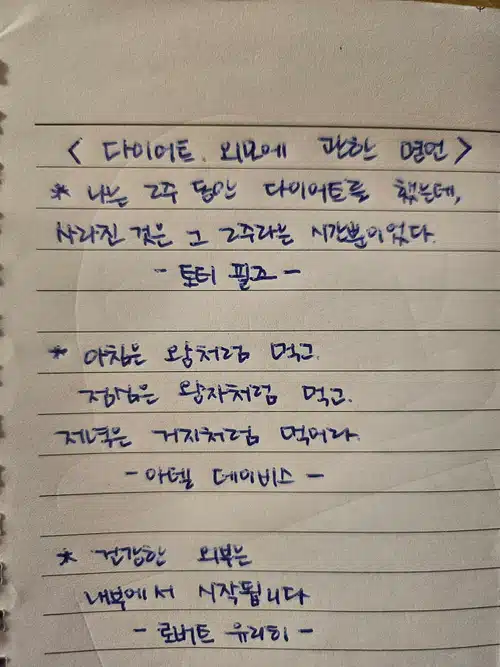 < 다이어트. 외모에 관한 명언 >
* 나는 2주 동안 다이어트를 했는데,
사라진 것은 그 2주라는 시간뿐이었다.
- 토티 필즈 -
* 아침은 왕처럼 먹고.
점심은 왕자처럼 먹고.
저녁은 거지처럼 먹어라.
- 아델 데이비스 -
* 건강한 외부는
내부에서 시작됩니다
- 로버트 유리히 -